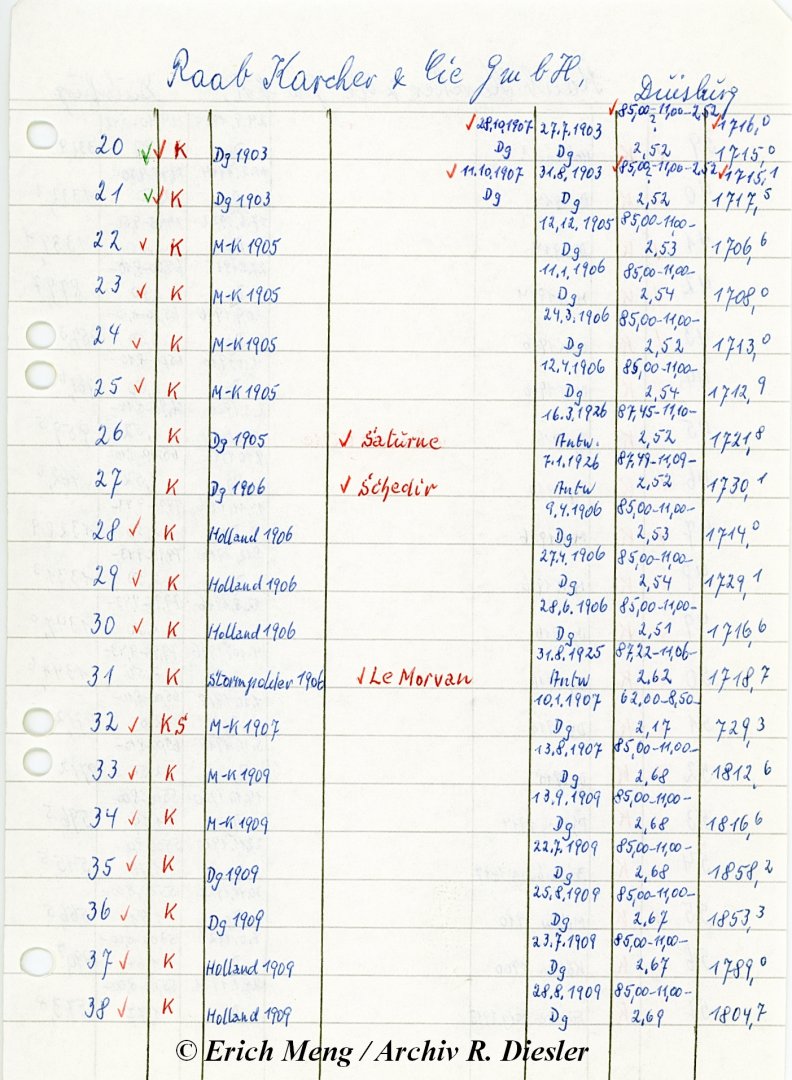 Raab Karcher & Cie GmbH, Duisburg
✓ 28.10.1907 27.7.1903 ✓ 85,00-11,00-2,52 ✓ 1716,0
20 ✓✓ K Dg 1903 Dg Dg 2,52 1715,0
✓ 11.10.1907 31.8.1903 ✓ 85,00-11,00-2,52 ✓ 1715,1
21 ✓✓ K Dg 1903 Dg Dg 2,52 1717,5
12.12.1905 85,00-11,00-
22 ✓ K M-K 1905 Dg 2,53 1706,6
11.1.1906 85,00-11,00-
23 ✓ K M-K 1905 Dg 2,54 1708,0
24.3.1906 85,00-11,00-
24 ✓ K M-K 1905 Dg 2,52 1713,0
12.4.1906 85,00-11,00-
25 ✓ K M-K 1905 Dg 2,54 1712,9
16.3.1926 87,45-11,10-
26 K Dg 1905 ✓ Saturne Antw. 2,52 1721,8
7.1.1926 87,49-11,09-
27 K Dg 1906 ✓ Schedir Antw 2,52 1730,1
9.4.1906 85,00-11,00-
28 ✓ K Holland 1906 Dg 2,53 1714,0
27.4.1906 85,00-11,00-
29 ✓ K Holland 1906 Dg 2,54 1729,1
28.6.1906 85,00-11,00-
30 ✓ K Holland 1906 Dg 2,51 1716,6
31.8.1925 87,22-11,06-
31 K Stormpolder 1906 ✓ Le Morvan Antw 2,62 1718,7
10.1.1907 62,00-8,50-
32 ✓ KS M-K 1907 Dg 2,17 729,3
13.8.1907 85,00-11,00-
33 ✓ K M-K 1909 Dg 2,68 1812,6
13.9.1909 85,00-11,00-
34 ✓ K M-K 1909 Dg 2,68 1816,6
22.7.1909 85,00-11,00-
35 ✓ K Dg 1909 Dg 2,68 1858,2
25.8.1909 85,00-11,00-
36 ✓ K Dg 1909 Dg 2,67 1853,3
23.7.1909 85,00-11,00-
37 ✓ K Holland 1909 Dg 2,67 1789,0
28.8.1909 85,00-11,00-
38 ✓ K Holland 1909 Dg 2,69 1804,7
© Erich Meng / Archiv R. Diesler